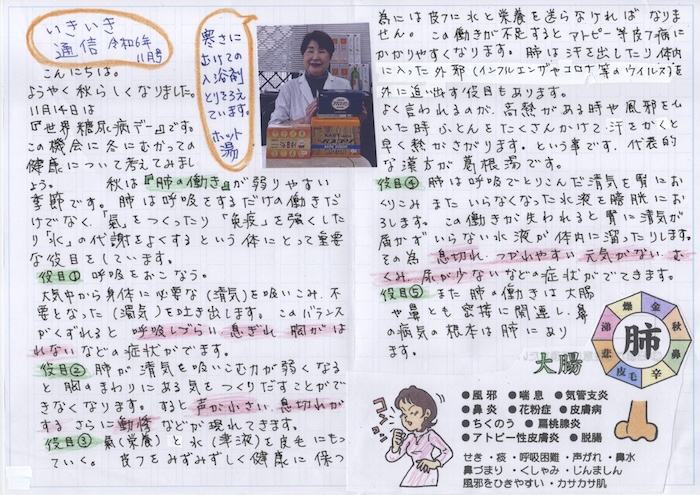 いきいき
通信 令和6年
11月号
寒さに
むけての
入浴剤
とりそろえ
ています。
ホット
湯
こんにちは。
ようやく秋らしくなりました。
11月14日は
『世界糖尿病デー』です。
この機会に冬にむかっての
健康について考えてみまし
ょう。 秋は『肺の働き』が弱りやすい
季節です。肺は呼吸をするだけの働きだ
けでなく、「氣」をつくったり「免疫」を強くした
り「水」の代謝をよくするという体にとって重要
な役目をしています。
役目① 呼吸をおこなう。
大気中から身体に必要な(清気)を吸いこみ、不
要となった(濁気)を吐き出します。このバランス
がくずれると 呼吸しづらい 息ぎれ 胸がは
れない などの症状がでます。
役目② 肺が清気を吸いこむ力が弱くなる
と胸のまわりにある気をつくりだすことがで
きなくなります。すると声が小さい、息切れが
する さらに動悸 などが現れてきます。
役目③ 氣(栄養)と水(津液)を皮毛にもっ
ていく。 皮フをみずみずしく健康に保つ
為には皮フに水と栄養を送らなければなりま
せん。この働きが不足するとアトピー等皮フ病に
かかりやすくなります。肺は汗を出したり体内
に入った外邪(インフルエンザやコロナ等のウイルス)を
外に追い出す役目もあります。
よく言われるのが、高熱がある時や風邪をひ
いた時ふとんをたくさんかけて汗をかくと
早く熱がさがります。という事です。代表的
な漢方が葛根湯です。
役目④ 肺は呼吸でとりこんだ清気を腎にお
くりこみ またいらなくなった水液を膀胱にお
ろします。この働きが失われると腎に清気が
届かずいらない水液が体内に溜ったりします。
その為 息切れ、つかれやすい 元気がない、む
くみ、尿が少ないなどの症状がでてきます。
役目⑤ また肺の働きは大腸
や鼻とも密接に関連し、鼻
の病気の根本は肺にあり
ます。
大腸
肺
燥 金 秋 鼻 辛 皮毛 悲 涕
コンコン
●風邪 ●喘息 ●気管支炎
●鼻炎 ●花粉症 ●皮膚病
●ちくのう ●扁桃腺炎
●アトピー性皮膚炎 ●脱腸
せき・痰・呼吸困難・声がれ・鼻水
鼻づまり・くしゃみ・じんましん
風邪をひきやすい・カサカサ肌